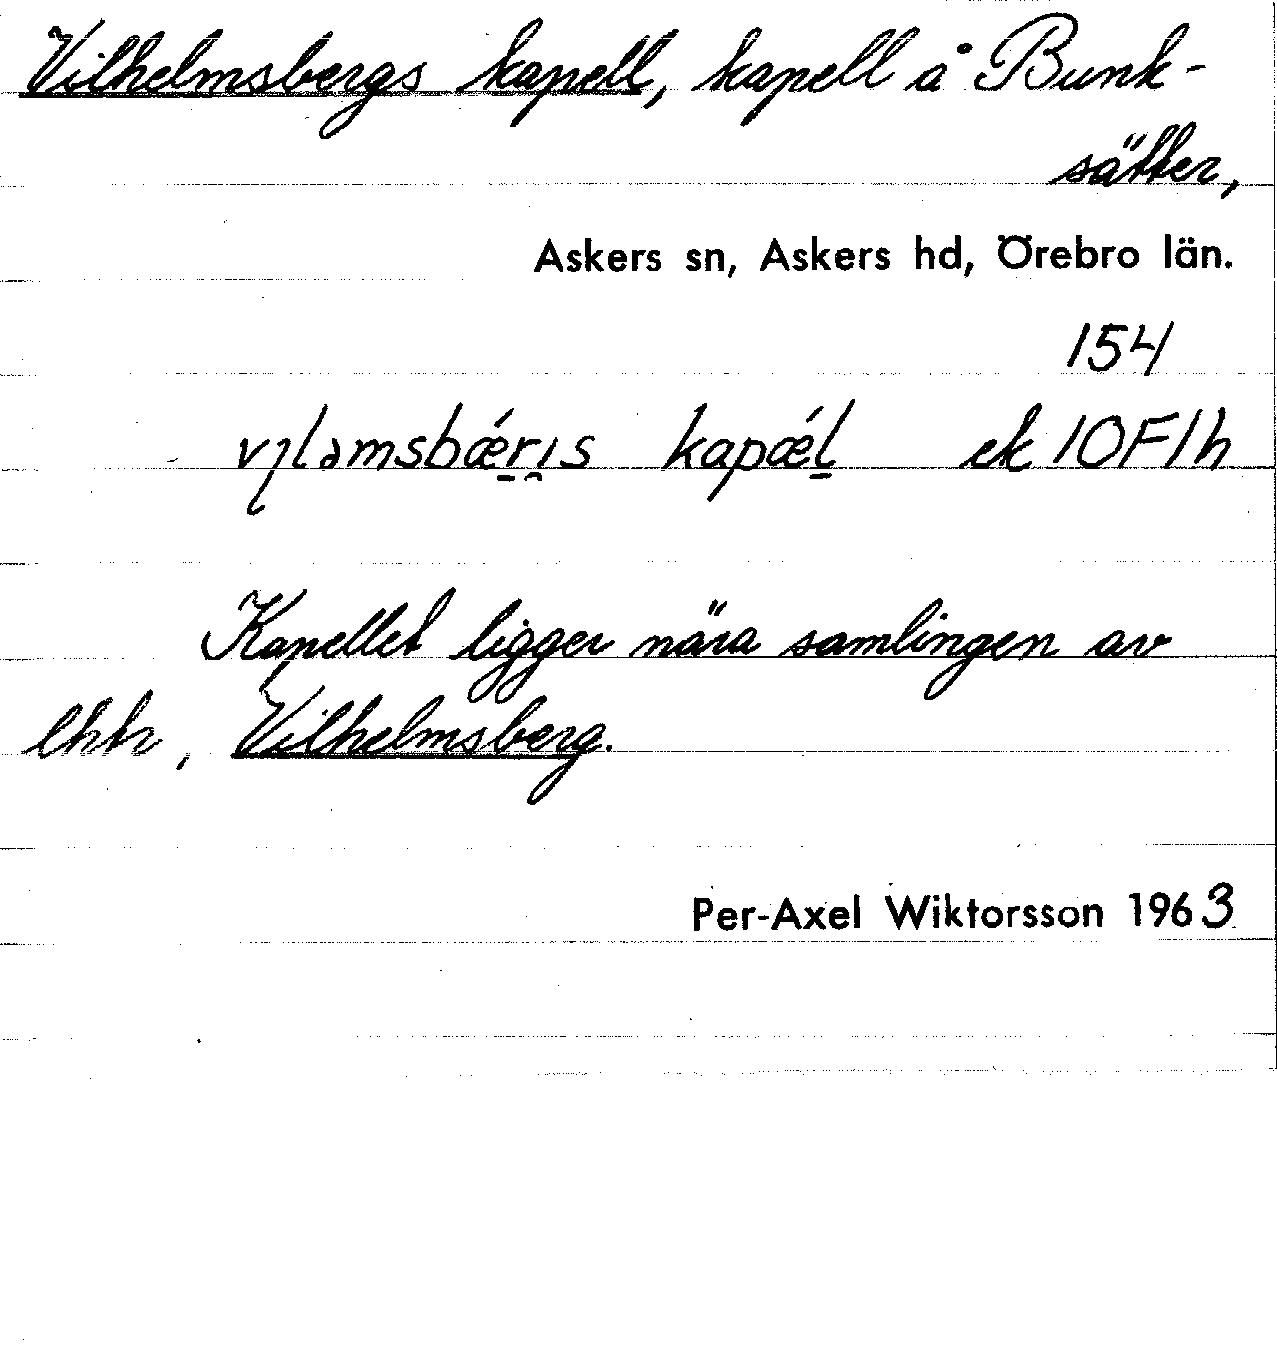 Vilhelmsbergs kapell, kapell å Bunk-
sätter,
Askers sn, Askers hd, Örebro län.
154
vɩləmsbǽrıs kapǽl ek 10F1h
Kapellet ligger nära samlingen av
lhhr, Vilhelmsberg.
Per-Axel Wiktorsson 1963